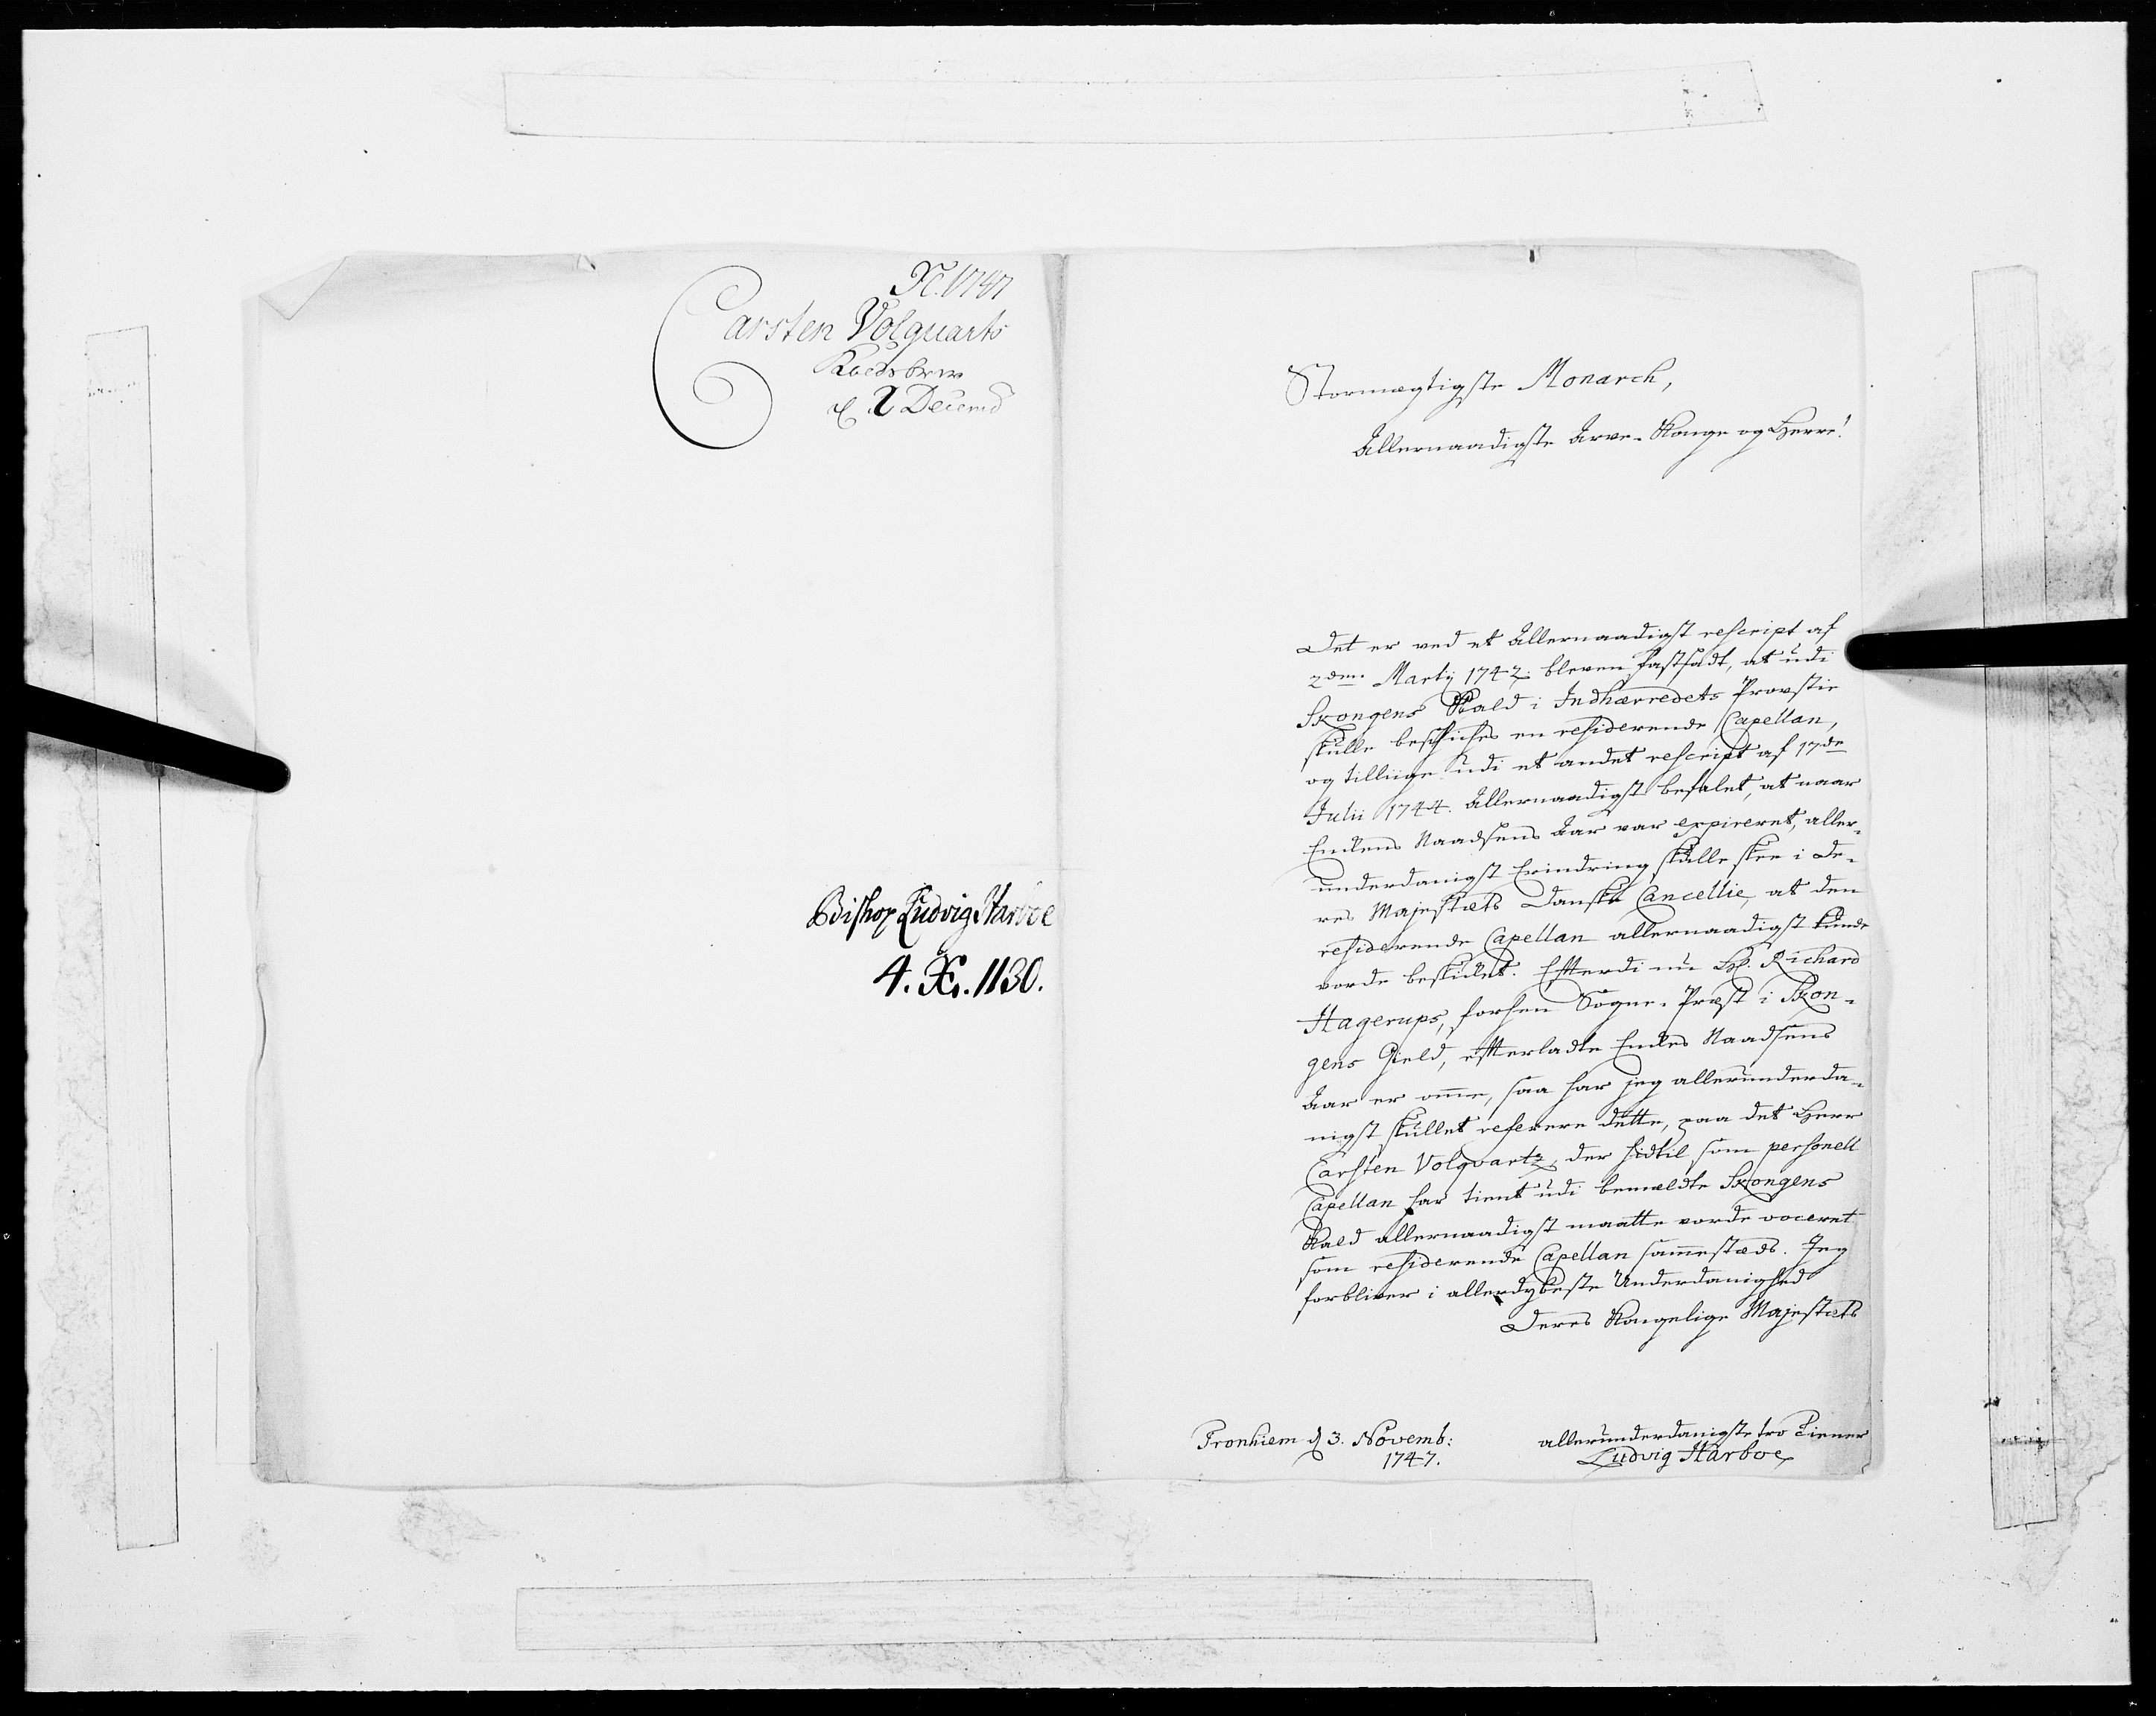 Xt. 1747
Carsten Volquarts
Kaldsbrev
d 2 Decemb
Bishop Ludvig Harboe
4. X. 1130.
Stormægtigste Monarch,
Allernaadigste Arve-Konge og Herre!
Det er ved et Allernaadigst rescript af
2den Martij 1742. bleven fastsadt, at udi
Skongens Kald i Indhærredets Provstie
skulle beskikkes en residerende Capellan,
og tilliige udi et andet rescript af 17de
Julii 1744. Allernaadigst befalet, at naar
Enkens Naadsens Aar var expireret, aller-
underdanigst Erindring skulle skee i De-
res Majestæts Danske Cancellie, at den
residerende Capellan allernaadigst kunde
vorde beskicket. Efterdi nu Hr. Richard
Hagerups, forhen Sogne-Præst i Skon-
gens Gield, efterladte Enkes Naadsens
Aar er omme, saa har jeg allerunderda-
nigst skullet referere dette, paa det Herr
Carsten Volqvartz, der hidtil som personell
Capellan har tient udi bemeldte Skongens
Kald allernaadigst maatte vorde voceret
som residerende Capellan sammestæds. Jeg
forbliver i allerdybeste Underdanighed
Deres Kongelige Majestæts
Tronhiem d 3. Novemb:
1747.
allerunderdanigste tro Tiener
Ludvig Harboe